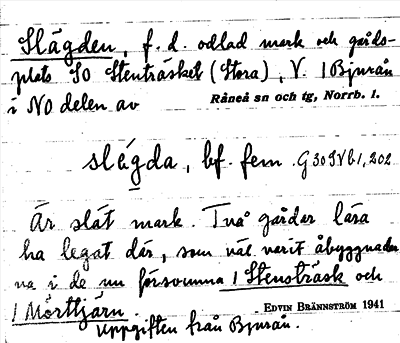 Slägden, f. d. odlad mark och gårds-
plats SO Stenträsket (Stora), V. 1 Bjurån
i NO delen av Råneå sn och tg, Norrb. l.
slägda, bf. fem. G 30 IV b:1, 202
Är slät mark. Två gårdar lära
ha legat där, som väl varit åbyggnader
na i de nu försvunna 1 Stensträsk och
1 Mörttjärn. EDVIN BRÄNNSTRÖM 1941
Uppgiften från Bjurån.